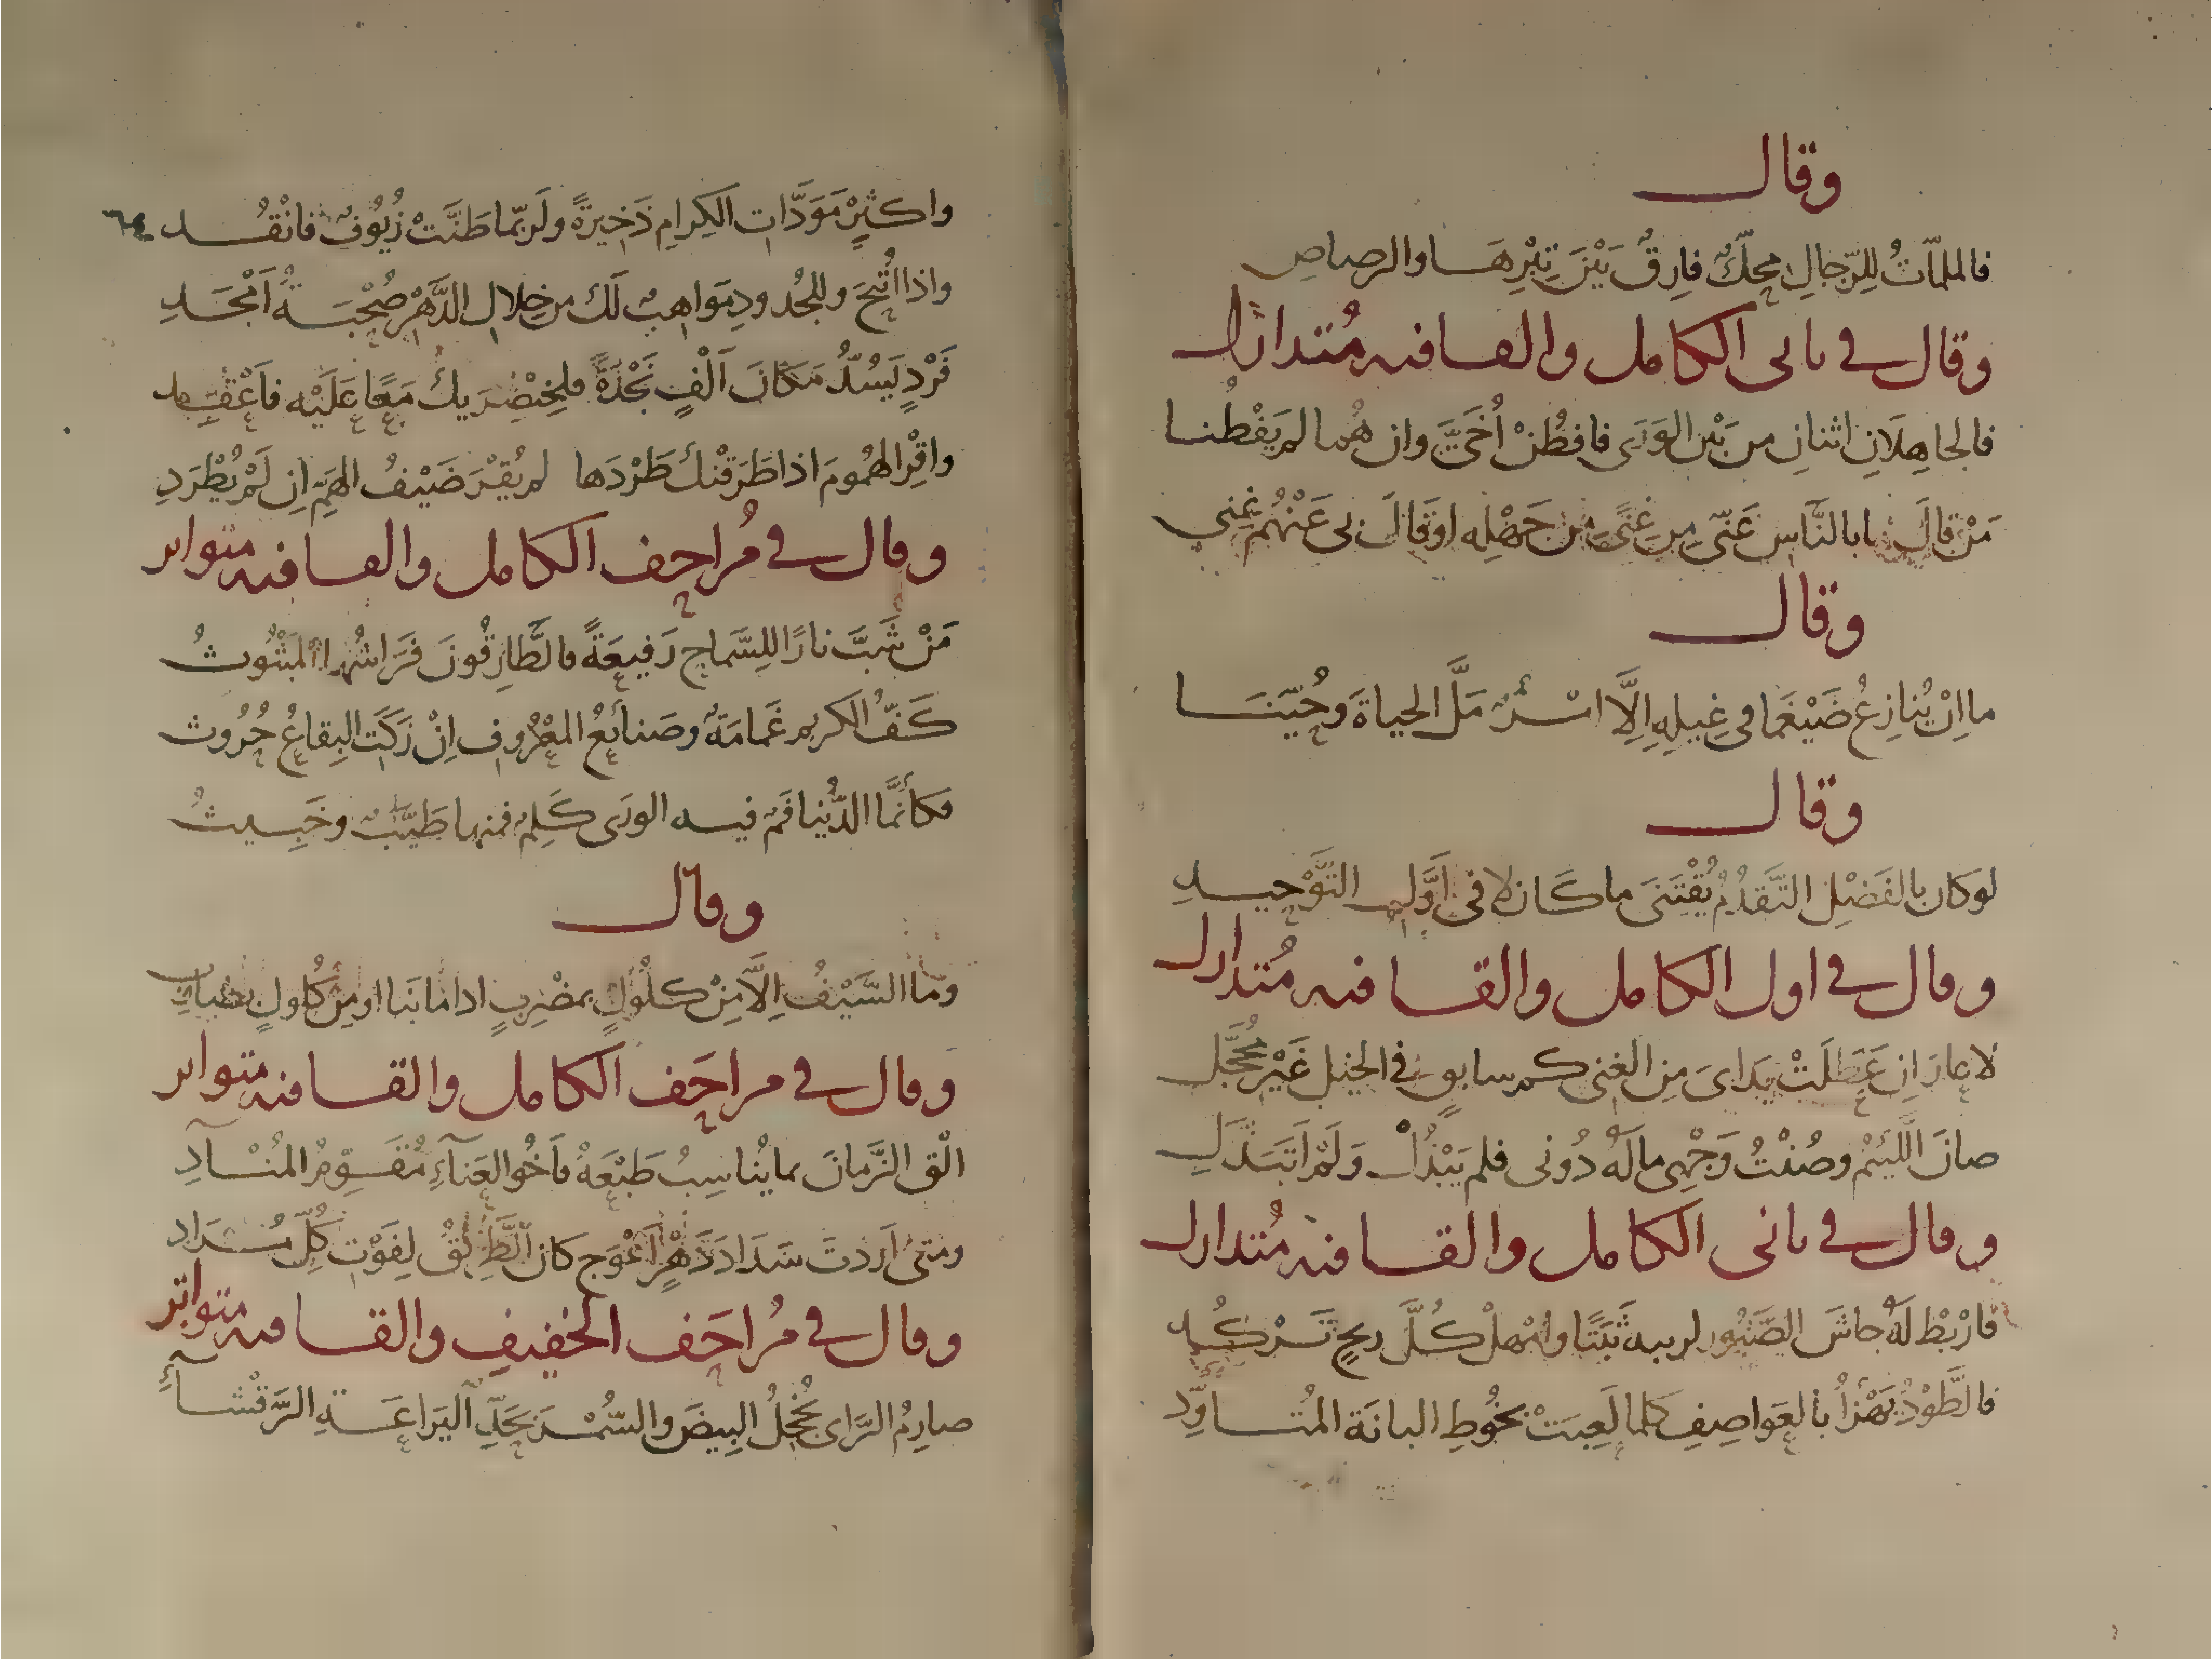 وقال
فالملمّاتُ للِرّجالِ محكّ فارِقٌ بَيْنَ تِبْرِهَا والرصاصِ
وقال في ثاني الكامل والقافيه مُتدارك
فالجاهِلَانِ اثنانِ من بَيْن الوَرَى فافطُنْ أُخَيَّ وان هُما لم يَفْطُنا
مَنْ قالَ ما بالنَّاسِ عَنّى مِن غِنًى مِن جَهْلِه او قَالَ بى عَنْهُم غِنى
وقال
ما اِنْ يُنازِعُ ضَيْغَما في غِيلِهِ اِلَّا امْرُؤٌ مَلَّ الحياةَ وحُيّنَا
وقال
لو كان بالفَضْلِ التَّقدُّمُ يُقْتَنَى ما كَان لا فى اَوَّل التَّوْحيد
وقال في اول الكامل والقافيه مُتدارك
لا عارَ اِن عَطِلَتْ يَدَاىَ مِن الغِنى كم سابقٍ في الخيل غَيْرِ مُحَجَّلِ
صانَ اللَّئيمُ وصُنْتُ وَجْهِى مالَهُ دُونى فلم يَبْذُلْ وَلَمْ اَتَبَذَّلِ
وقال في ثاني الكامل والقافيه مُتدارك
فارْبُطْ لَهُ جاشَ الصَّبُور ثَبَتًا وامْهلْ كُلَّ ريحٍ تَرْكُد
فالطَّوْدُ يَهْزَأُ بالعَواصِفِ كلما لَعِبَتْ بخُوطِ البانَة المُتأوِّد
واكثِرْ مَوَدَّات الكِرامِ ذَخِيرةً ولَربّما طَنَّتْ زُيُوفٌ فانْقُد ٦٤
واذا اُتيحَ وللجُدودِ مَواهِبٌ لَك من خِلال الدَّهْرِ صُحْبَةُ اَمْجَدِ
فَرْدٍ يَسُدُّ مَكَانَ اَلْفٍ نَجْدَةً فلِخِنْصِرَيك مَعًا عَلَيْه فاَعْقِد
واقْرِ الهُمومَ اذا طَرَقْنكَ طَرْدَها لم يُقْرَ ضَيْفُ الهَمِّ اِن لَمْ يُطْرَدِ
وقال في مُزاحِف الكامل والقافيه متواتر
مَنْ شَبَّ نارًا للِسَّماحِ رَفيعَةً فالطَّارِقُونَ فَرَاشُها المَبْثُوثُ
كَفُّ الكريم غَمامَةٌ وصَنائعُ المَعْرُوفِ اِنْ زَكَتِ البِقاعُ حُرُوث
فكأنَّما الدُّنيا فَمٌ فيه الورَى كَلِمٌ فمنها طَيّبٌ وخَبِيثُ
وقال
وما السَّيْفُ اِلَّا مِنْ كلُولٍ بمضْرِبٍ اذا ما نَبا او مِن فُلولٍ
وقال في مزاحَف الكامل والقافيه متواتر
الْق الزَّمانَ بما يُناسِبُ طَبْعَهُ فاَخُو العَنآءِ مُقَوِّمُ المُنْآدِ
ومتىَ اَردتَ سَدَادَ دَهْرٍ اَعْوَج كان لِفَوْتِ كُلّ سَدَاد
وقال في مُزاحَف الخفيفِ والقافيه متواتر
صارِمُ الرَّاى يُخْجِلُ البِيضَ والسُّمْرَ بحَدِّ اليَراعَةِ الرَّقْشَآءِ